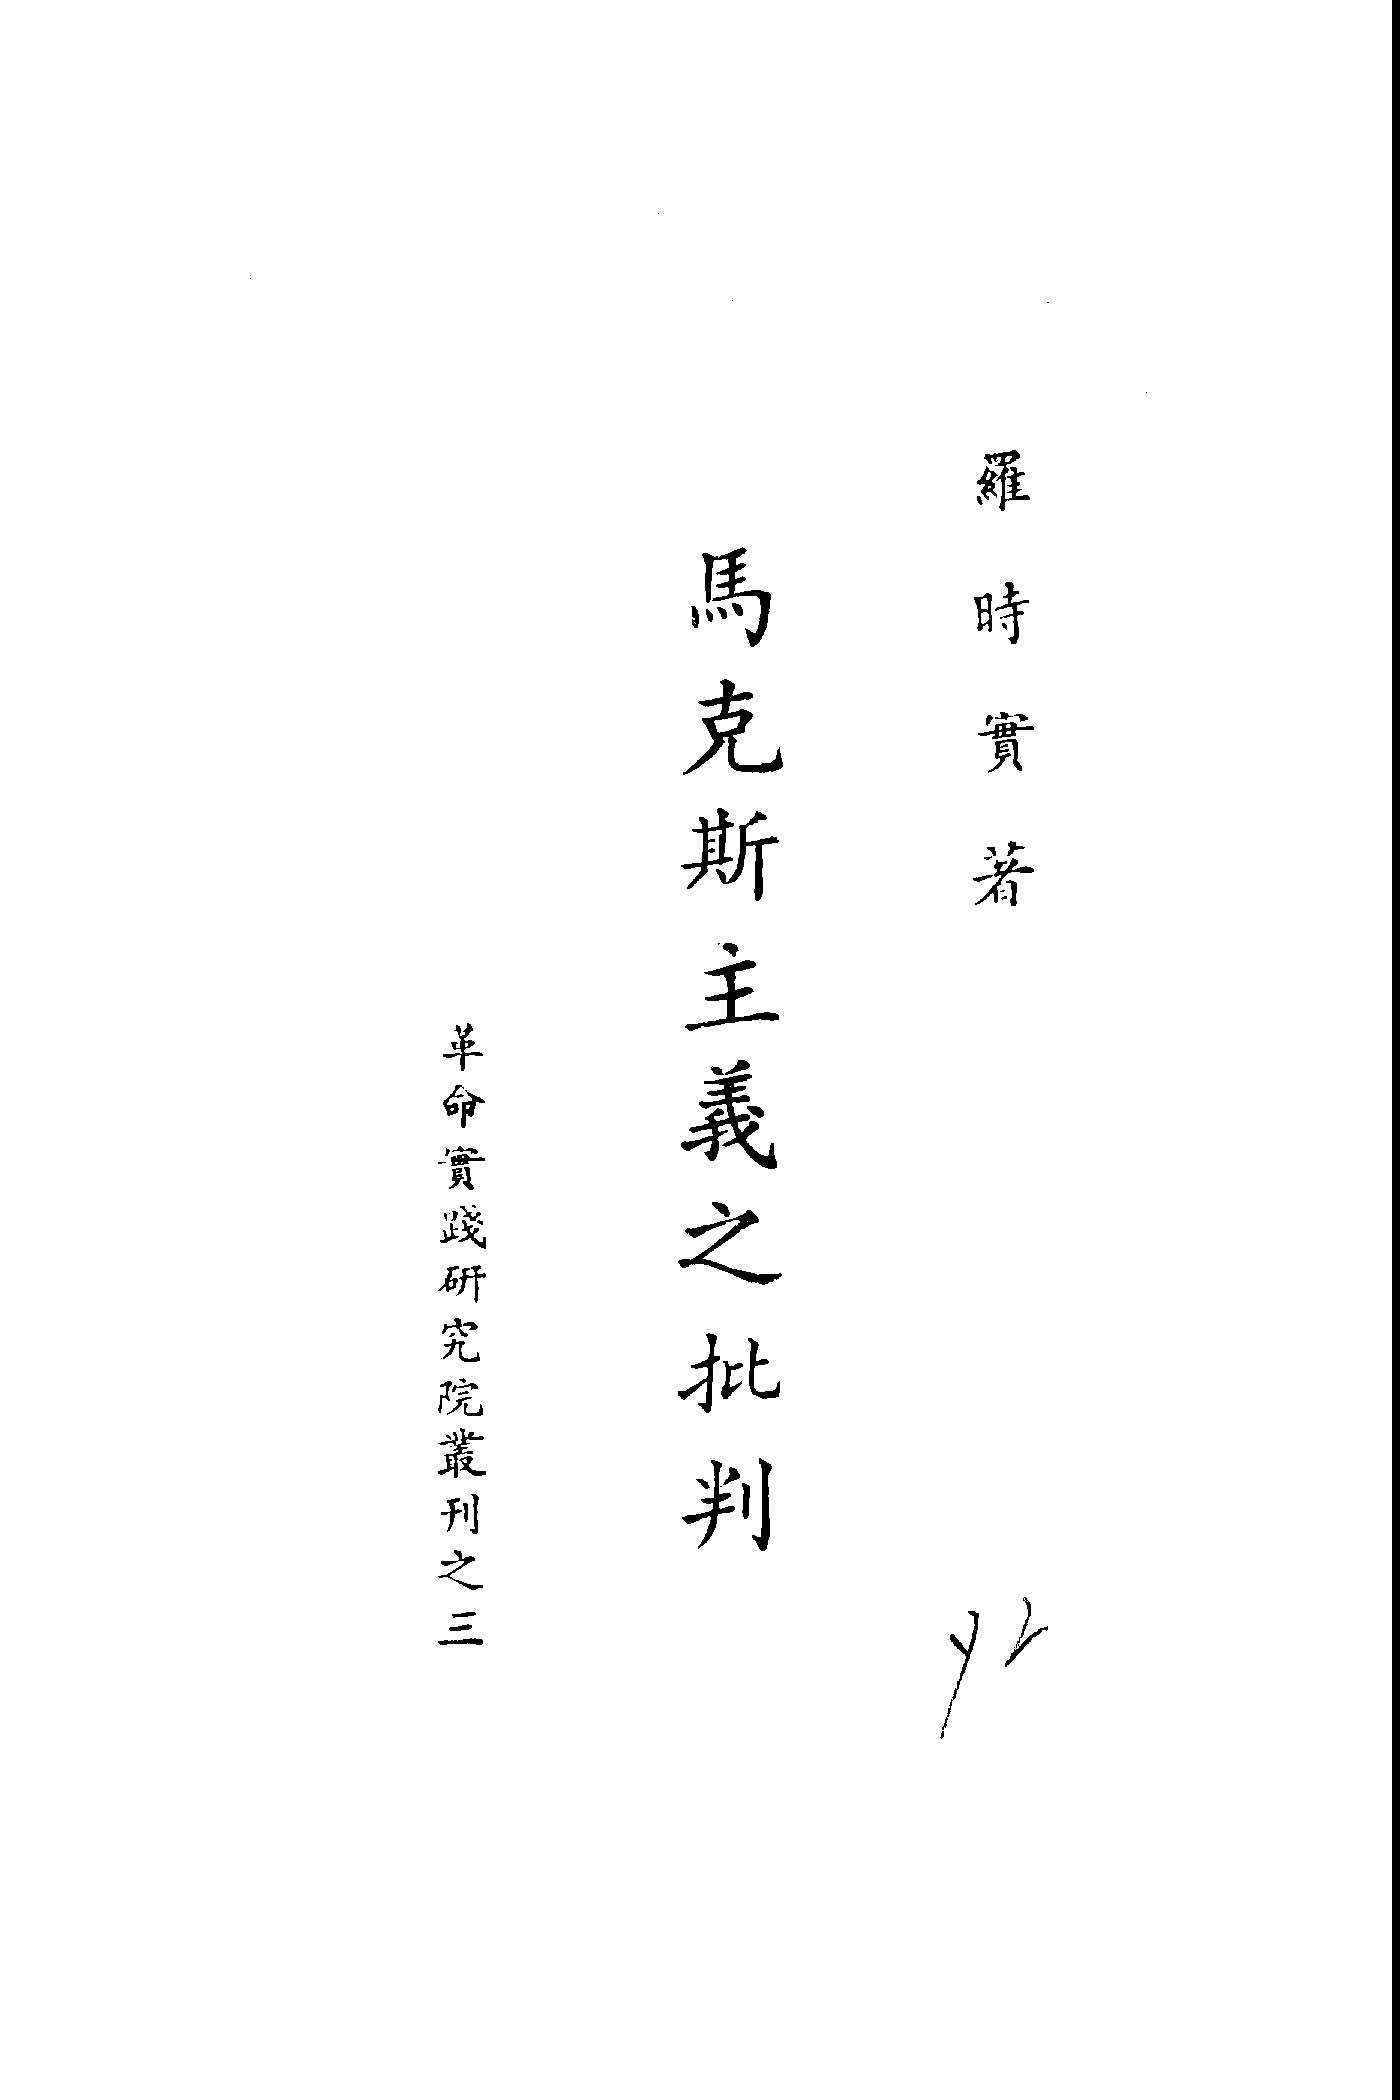 羅時實著
馬克斯主義之批判
革命實踐研究院叢刊之三